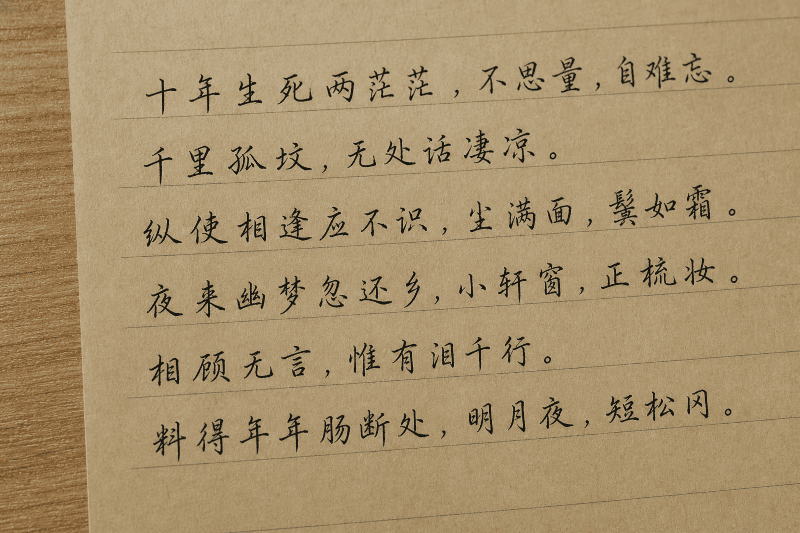 十年生死两茫茫,不思量,自难忘。
千里孤坟,无处话凄凉。
纵使相逢应不识,尘满面,鬓如霜。
夜来幽梦忽还乡,小轩窗,正梳妆。
相顾无言,惟有泪千行。
料得年年肠断处,明月夜,短松冈。